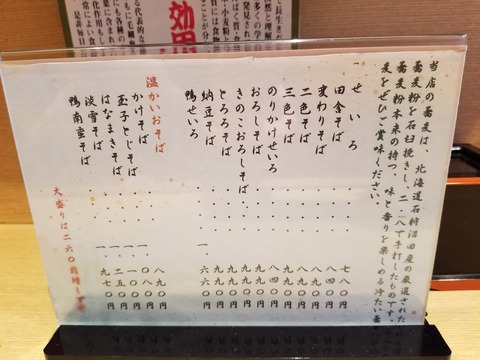 当店の蕎麦は、北海道石狩沼田産の厳選された
蕎麦粉を石臼挽きし、二・八で手打したものです。
蕎麦粉本来の持つ、味と香りを楽しめる冷たい蕎
麦をぜひご賞味ください。
せいろ・・・・七八〇円
田舎そば・・・・八四〇円
変わりそば・・・・八四〇円
二色そば・・・・九九〇円
三色そば・・・・九九〇円
のりかけせいろ・・・八四〇円
おろしそば・・・・九九〇円
きのこおろしそば・・九九〇円
とろろそば・・・・九九〇円
納豆そば・・・・九九〇円
鴨せいろ・・・一、六六〇円
温かいおそば
かけそば・・・・八九〇円
玉子とじそば・・一、〇八〇円
はなまきそば・・一、一〇〇円
淡雪そば・・・一、二五〇円
鴨南蛮そば・・・一、九七〇円
大盛りは二六〇円増しです
効用